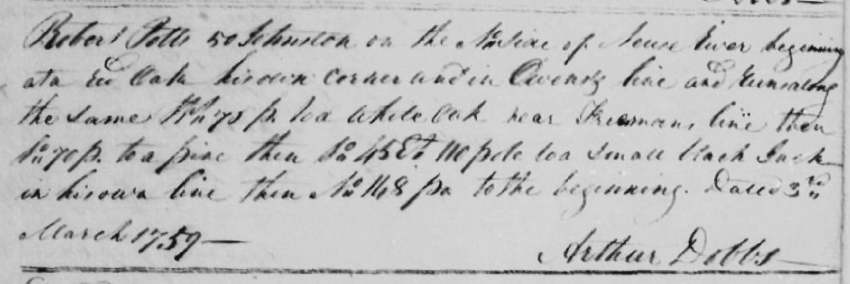 Robert Potts 50 Johnston on the No. Side of Neuse River begining
at a Red Oak his own corner and in Owens's line and Runs along
the same No. 75 po. to a white Oak near Freemans line then
So. 70 p. to a pine then So. 45 Et. 110 pole to a small black Jack
in his own line then No. 148 po to the beginning. Dated 3rd
March 1759—
Arthur Dobbs